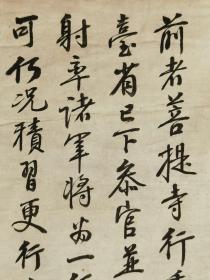 前者菩提寺行
臺省已下叅官並
射率諸軍將為一行
可何況積習更行